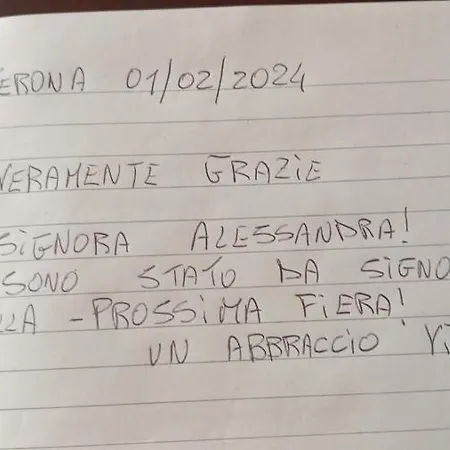 ERONA 01/02/2024
VERAMENTE GRAZIE
SIGNORA ALESSANDRA!
SONO STATO DA SIGNO
LLA - PROSSIMA FIERA!
UN ABBRACCIO